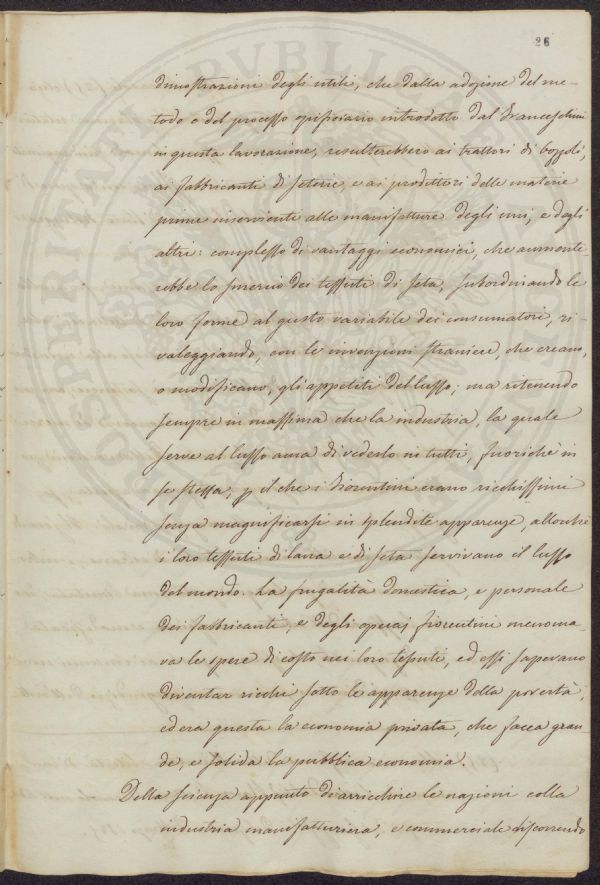 26
dimostrazioni degli utili, che dalla adozione del me-
todo e del processo opificiario introdotto dal Franceschini
in questa lavorazione, resulterebbero ai trattori di bozzoli,
ai fabbricanti di seterie, e ai produttori delle materie
prime inservienti alle manifatture degli uni, e degli
altri: complesso di vantaggi economici, che aumente
rebbe lo smercio dei tessuti di seta, subordinando le
loro forme al gusto variabile dei consumatori, ri
valeggiando, con le invenzioni straniere, che creano,
o modificano, gli appetiti del lusso; ma ritenendo
sempre in massima che la industria, la quale
serve al lusso ama di vederlo in tutti, fuorichè in
se stessa, p il che i Fiorentini erano ricchissimi
senza magnificarsi in splendide apparenze, allorchè
i loro tessuti di lana e di seta servivano il lusso
del mondo. La frugalità domestica, e personale
dei fabbricanti, e degli operaj fiorentini menoma-
va le spese di costo nei loro tessuti, ed essi sapevano
diventar ricchi sotto le apparenze della povertà,
ed era questa la economia privata, che facea gran
de, e solida la pubblica economia.
Della scienza appunto di arricchire le nazioni colla
industria manifatturiera, e commerciale discorrendo
PROSPERITATI PVBLICAE